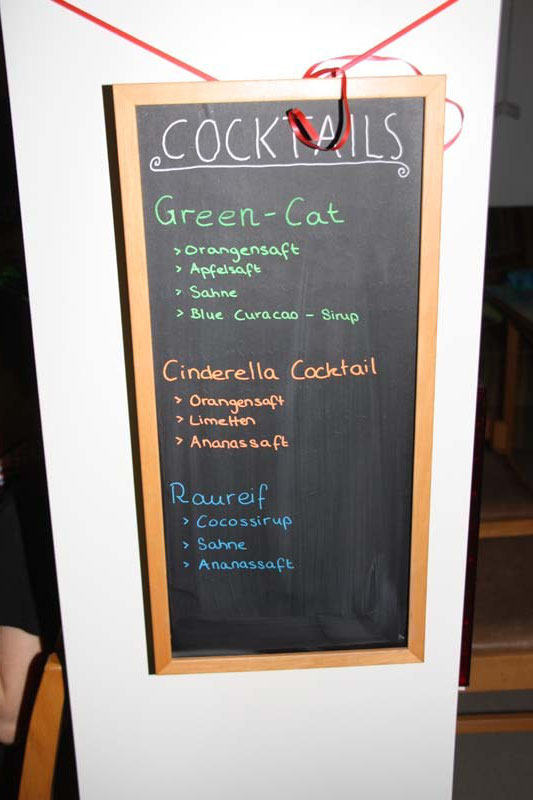 COCKTAILS
Green-Cat
> Orangensaft
> Apfelsaft
> Sahne
> Blue Curacao - Sirup
Cinderella Cocktail
> Orangensaft
> Limetten
> Ananassaft
Raureif
> Cocossirup
> Sahne
> Ananassaft